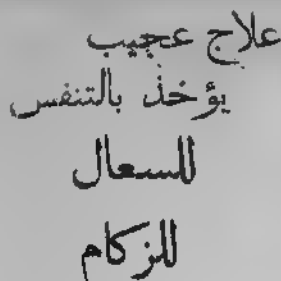 علاج عجيب
يؤخذ بالتنفس
للسعال
للزكام